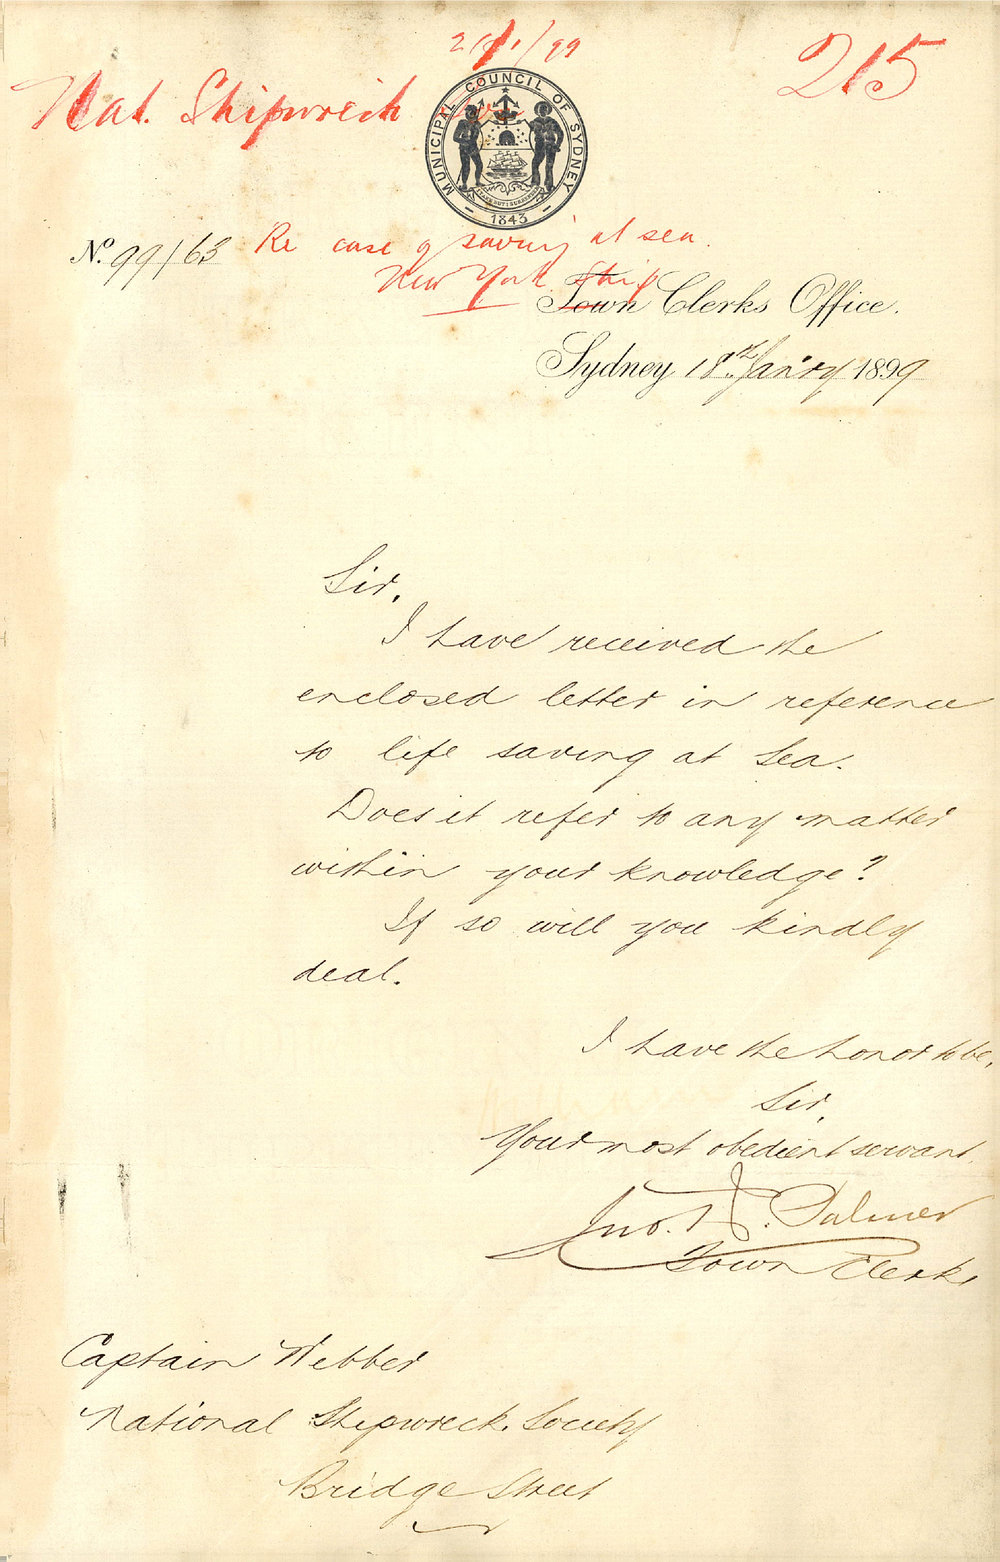 215
Nat. Shipwreck
MUNICIPAL COUNCIL OF SYDNEY
1843
No. 99/63
Re case of saving at sea.
New York Ship
Town Clerks Office.
Sydney 18th Jan'ry 1899
Sir,
I have received the
enclosed letter in reference
to life saving at Sea.
Does it refer to any matter
within your knowledge?
If so will you kindly
deal.
I have the honor to be,
Sir,
Your most obedient servant,
Jno. Palmer
Town Clerk
Captain Webber
National Shipwreck Society
Bridge Street